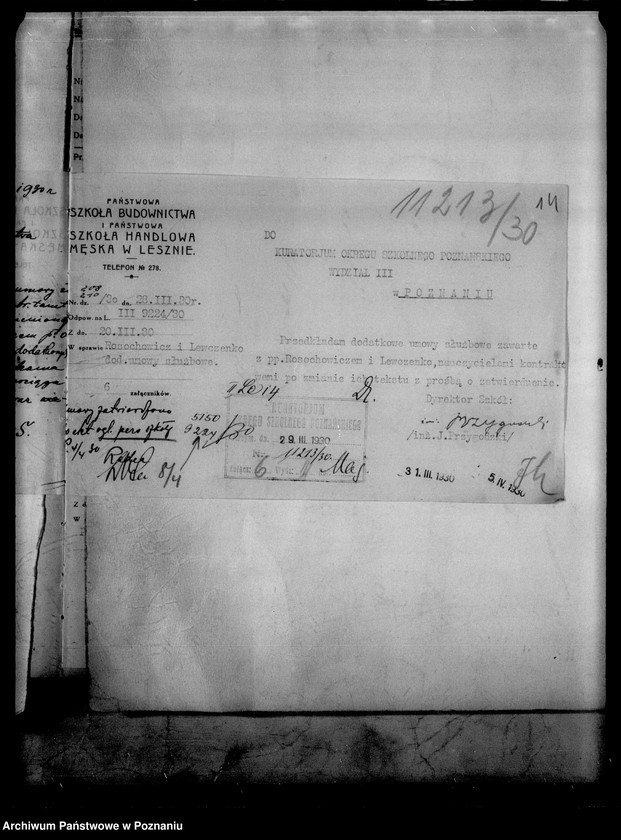 11213/30
14
PAŃSTWOWA
SZKOŁA BUDOWNICTWA
I PAŃSTWOWA
SZKOŁA HANDLOWA
MĘSKA W LESZNIE.
TELEFON № 278.
Nr. dz. 208 240 /30 dn. 29.III.30r.
Odpow. na L. III 9224/30
z dn. 20.III.30
W sprawie Rozochowicz i Lewczenko
dod.umowy służbowe.
6 załączników.
DO
KURATORJUM OKRĘGU SZKOLNEGO POZNAŃSKIEGO
WYDZIAŁ III
w POZNANIU
Przedkładam dodatkowe umowy służbowe zawarte
z pp.Rozochowiczem i Lewczenko, nauczycielami kontrakto
wemi po zmianie ich tekstu z prośbą o zatwierdzenie.
Dyrektor Szkół:
/inż.J.Przygodzki/
umowy zatwierdzono
5150
9224/30
8/4
KURATORJUM
OKRĘGU SZKOLNEGO POZNAŃSKIEGO
29.III.1930
Nr. 11213/30
Załącz. 6 Wydz. III
31.III.1930
5.IV.1930
1930 r
Archiwum Państwowe w Poznaniu